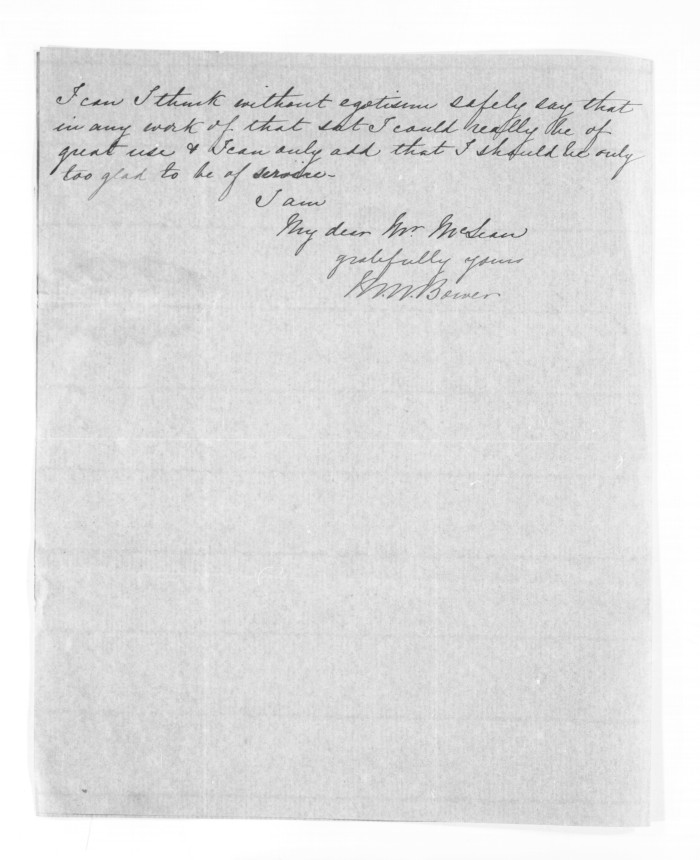 I can I think without egotism safely say that
in any work of that sort I could really be of
great use & I can only add that I should be only
too glad to be of service -
I am
My dear Mr McLean
gratefully yours
Bower